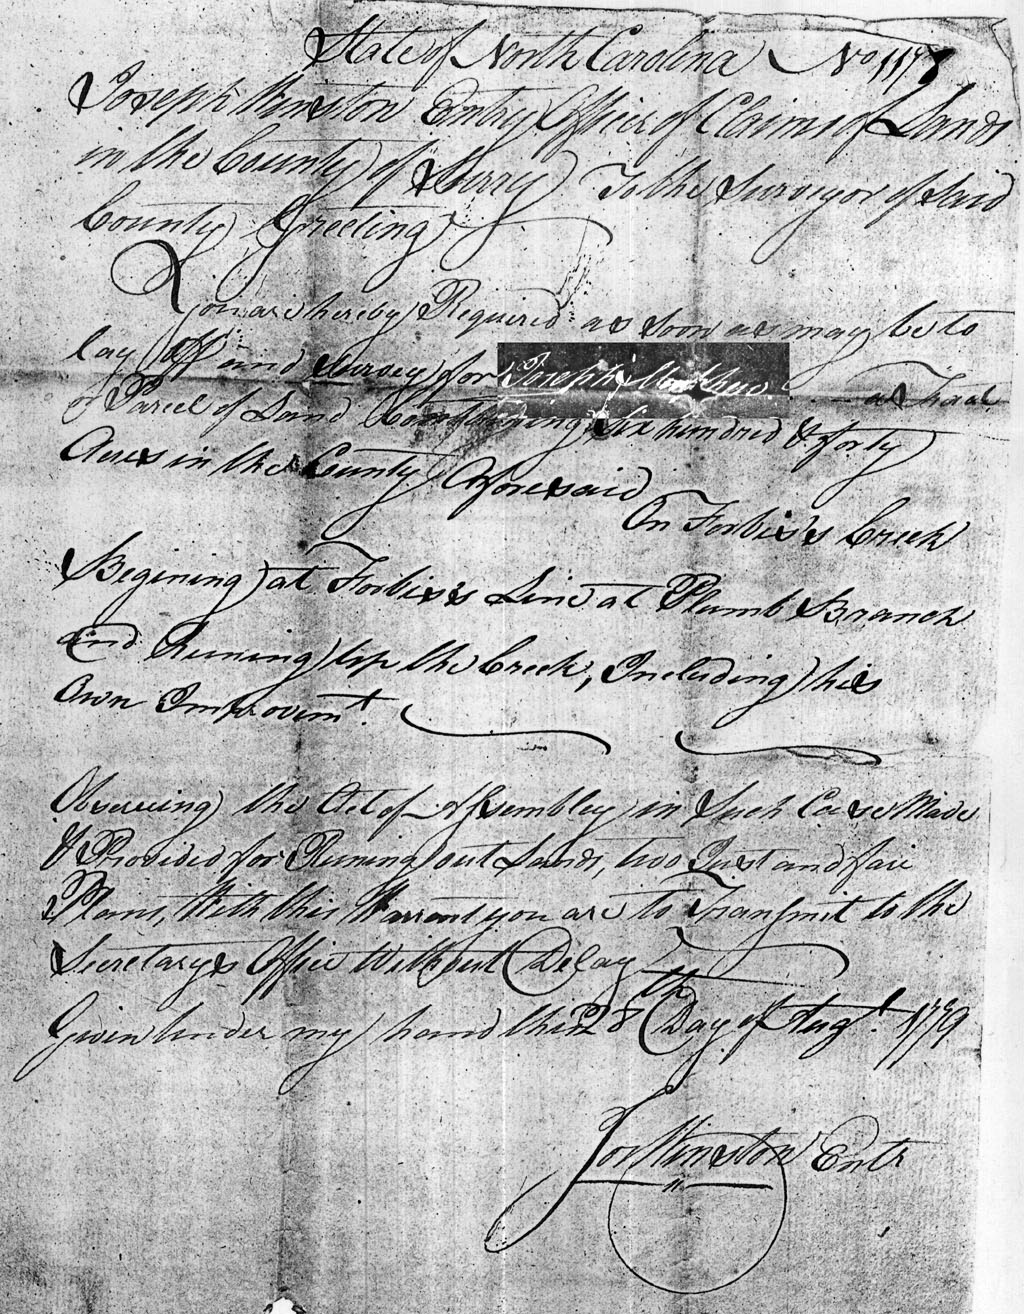 State of North Carolina No 1178
Joseph Winston Entry Officer of Claims of Lands
in the County of Surry To the Surveyor of Said
County Greeting
You are hereby Required as soon as may be to
lay off and Survey for Joseph Mathews a Tract
or Parcel of Land Containing Six hundred & forty
Acres in the County Aforesaid
On Forbis's Creek
Begining at Forbis's Line at Plumb Branch
and Runing up the Creek, Including his
Own Improvemt.
Observing the Act of Assembley in Such Case Made
& Provided for Runing out Lands, two Just and fair
Plans, With this Warrent you are to Transmit to the
Secretarys Office Without Delay
Given under my hand this 28th Day of Augt. 1779
Jos Winston Entr